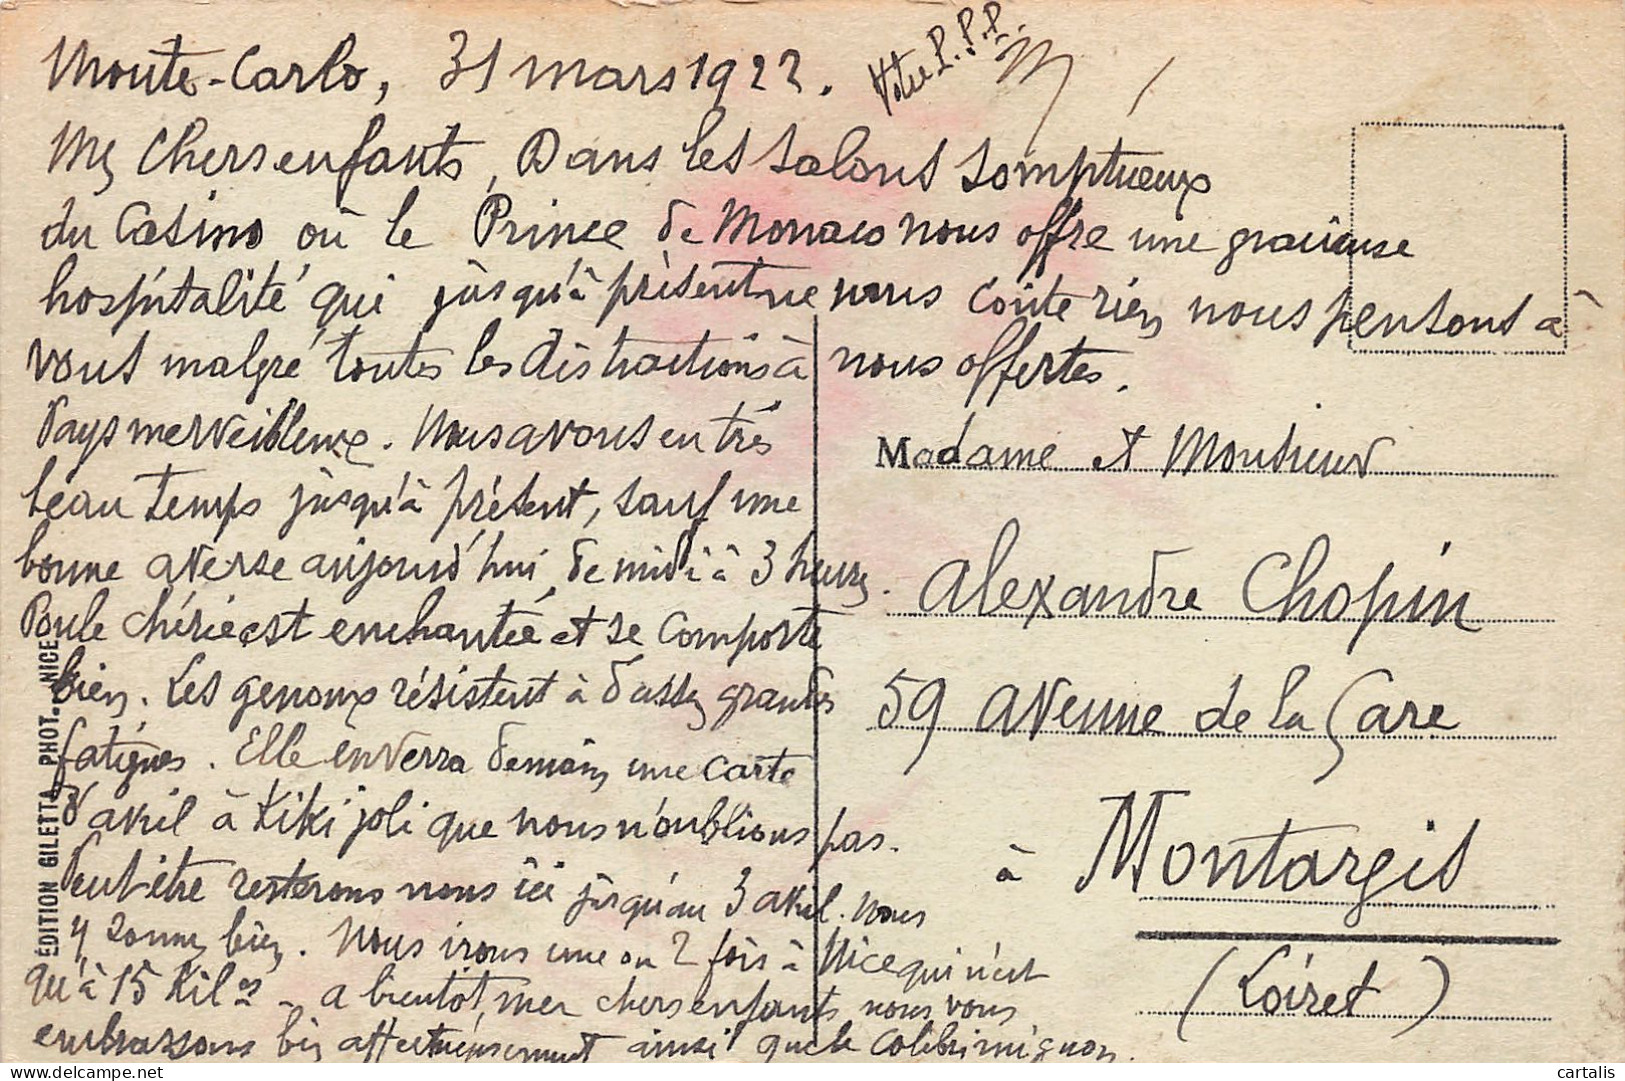 Monte-Carlo, 31 mars 1922.
Votre P.P.P.
Mes Chers enfants, Dans les salons somptueux
du Casino où le Prince de Monaco nous offre une gracieuse
hospitalité qui jusqu'à présent ne nous coûte rien, nous pensons à
vous malgré toutes les distractions à nous offertes.
Pays merveilleux. Nous avons eu très
beau temps jusqu'à présent, sauf une
bonne averse aujourd'hui, de midi à 3 heures.
Poule chérie est enchantée et se comporte
bien. Les genoux résistent à d'assez grandes
fatigues. Elle enverra demain une carte
d'avril à Kiki joli que nous n'oublions pas.
Peut-être resterons nous ici jusqu'au 3 avril. Nous
y sommes bien. Nous irons une ou 2 fois à Nice qui n'est
qu'à 15 Kilos - a bientôt, mes chers enfants, nous vous
embrassons bien affectueusement ainsi que le Colibri mignon.
Madame et Monsieur
Alexandre Chopin
59 avenue de la Gare
à Montargis
(Loiret)
ÉDITION GILETTA PHOT. NICE
cartalis